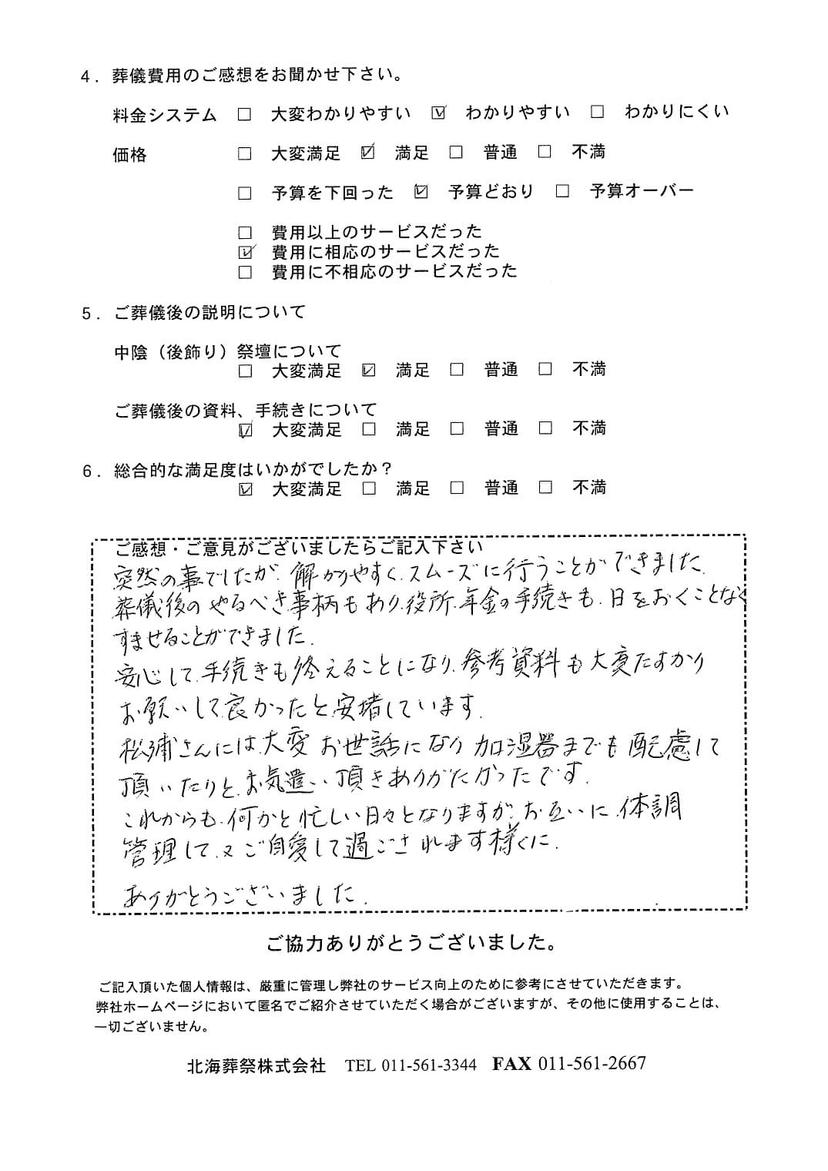 4．葬儀費用のご感想をお聞かせ下さい。
料金システム □ 大変わかりやすい ☑ わかりやすい □ わかりにくい
価格 □ 大変満足 ☑ 満足 □ 普通 □ 不満
□ 予算を下回った ☑ 予算どおり □ 予算オーバー
□ 費用以上のサービスだった
☑ 費用に相応のサービスだった
□ 費用に不相応のサービスだった
5．ご葬儀後の説明について
中陰（後飾り）祭壇について
□ 大変満足 ☑ 満足 □ 普通 □ 不満
ご葬儀後の資料、手続きについて
☑ 大変満足 □ 満足 □ 普通 □ 不満
6．総合的な満足度はいかがでしたか？
☑ 大変満足 □ 満足 □ 普通 □ 不満
ご感想・ご意見がございましたらご記入下さい
突然の事でしたが、解かりやすく、スムーズに行うことができました。
葬儀後のやるべき事柄もあり、役所、年金の手続きも、日をおくことなく
すませることができました。
安心して、手続きも終えることになり、参考資料も大変たすかり
お願いして良かったと、安堵しています。
松浦さんには、大変お世話になり加湿器までも配慮して
頂いたりと、お気遣い頂きありがたかったです。
これからも、何かと忙しい日々となりますが、お互いに、体調
管理して、又ご自愛して過ごされます様に。
ありがとうございました。
ご協力ありがとうございました。
ご記入頂いた個人情報は、厳重に管理し弊社のサービス向上のために参考にさせていただきます。
弊社ホームページにおいて匿名でご紹介させていただく場合がございますが、その他に使用することは、
一切ございません。
北海葬祭株式会社 TEL 011-561-3344 FAX 011-561-2667